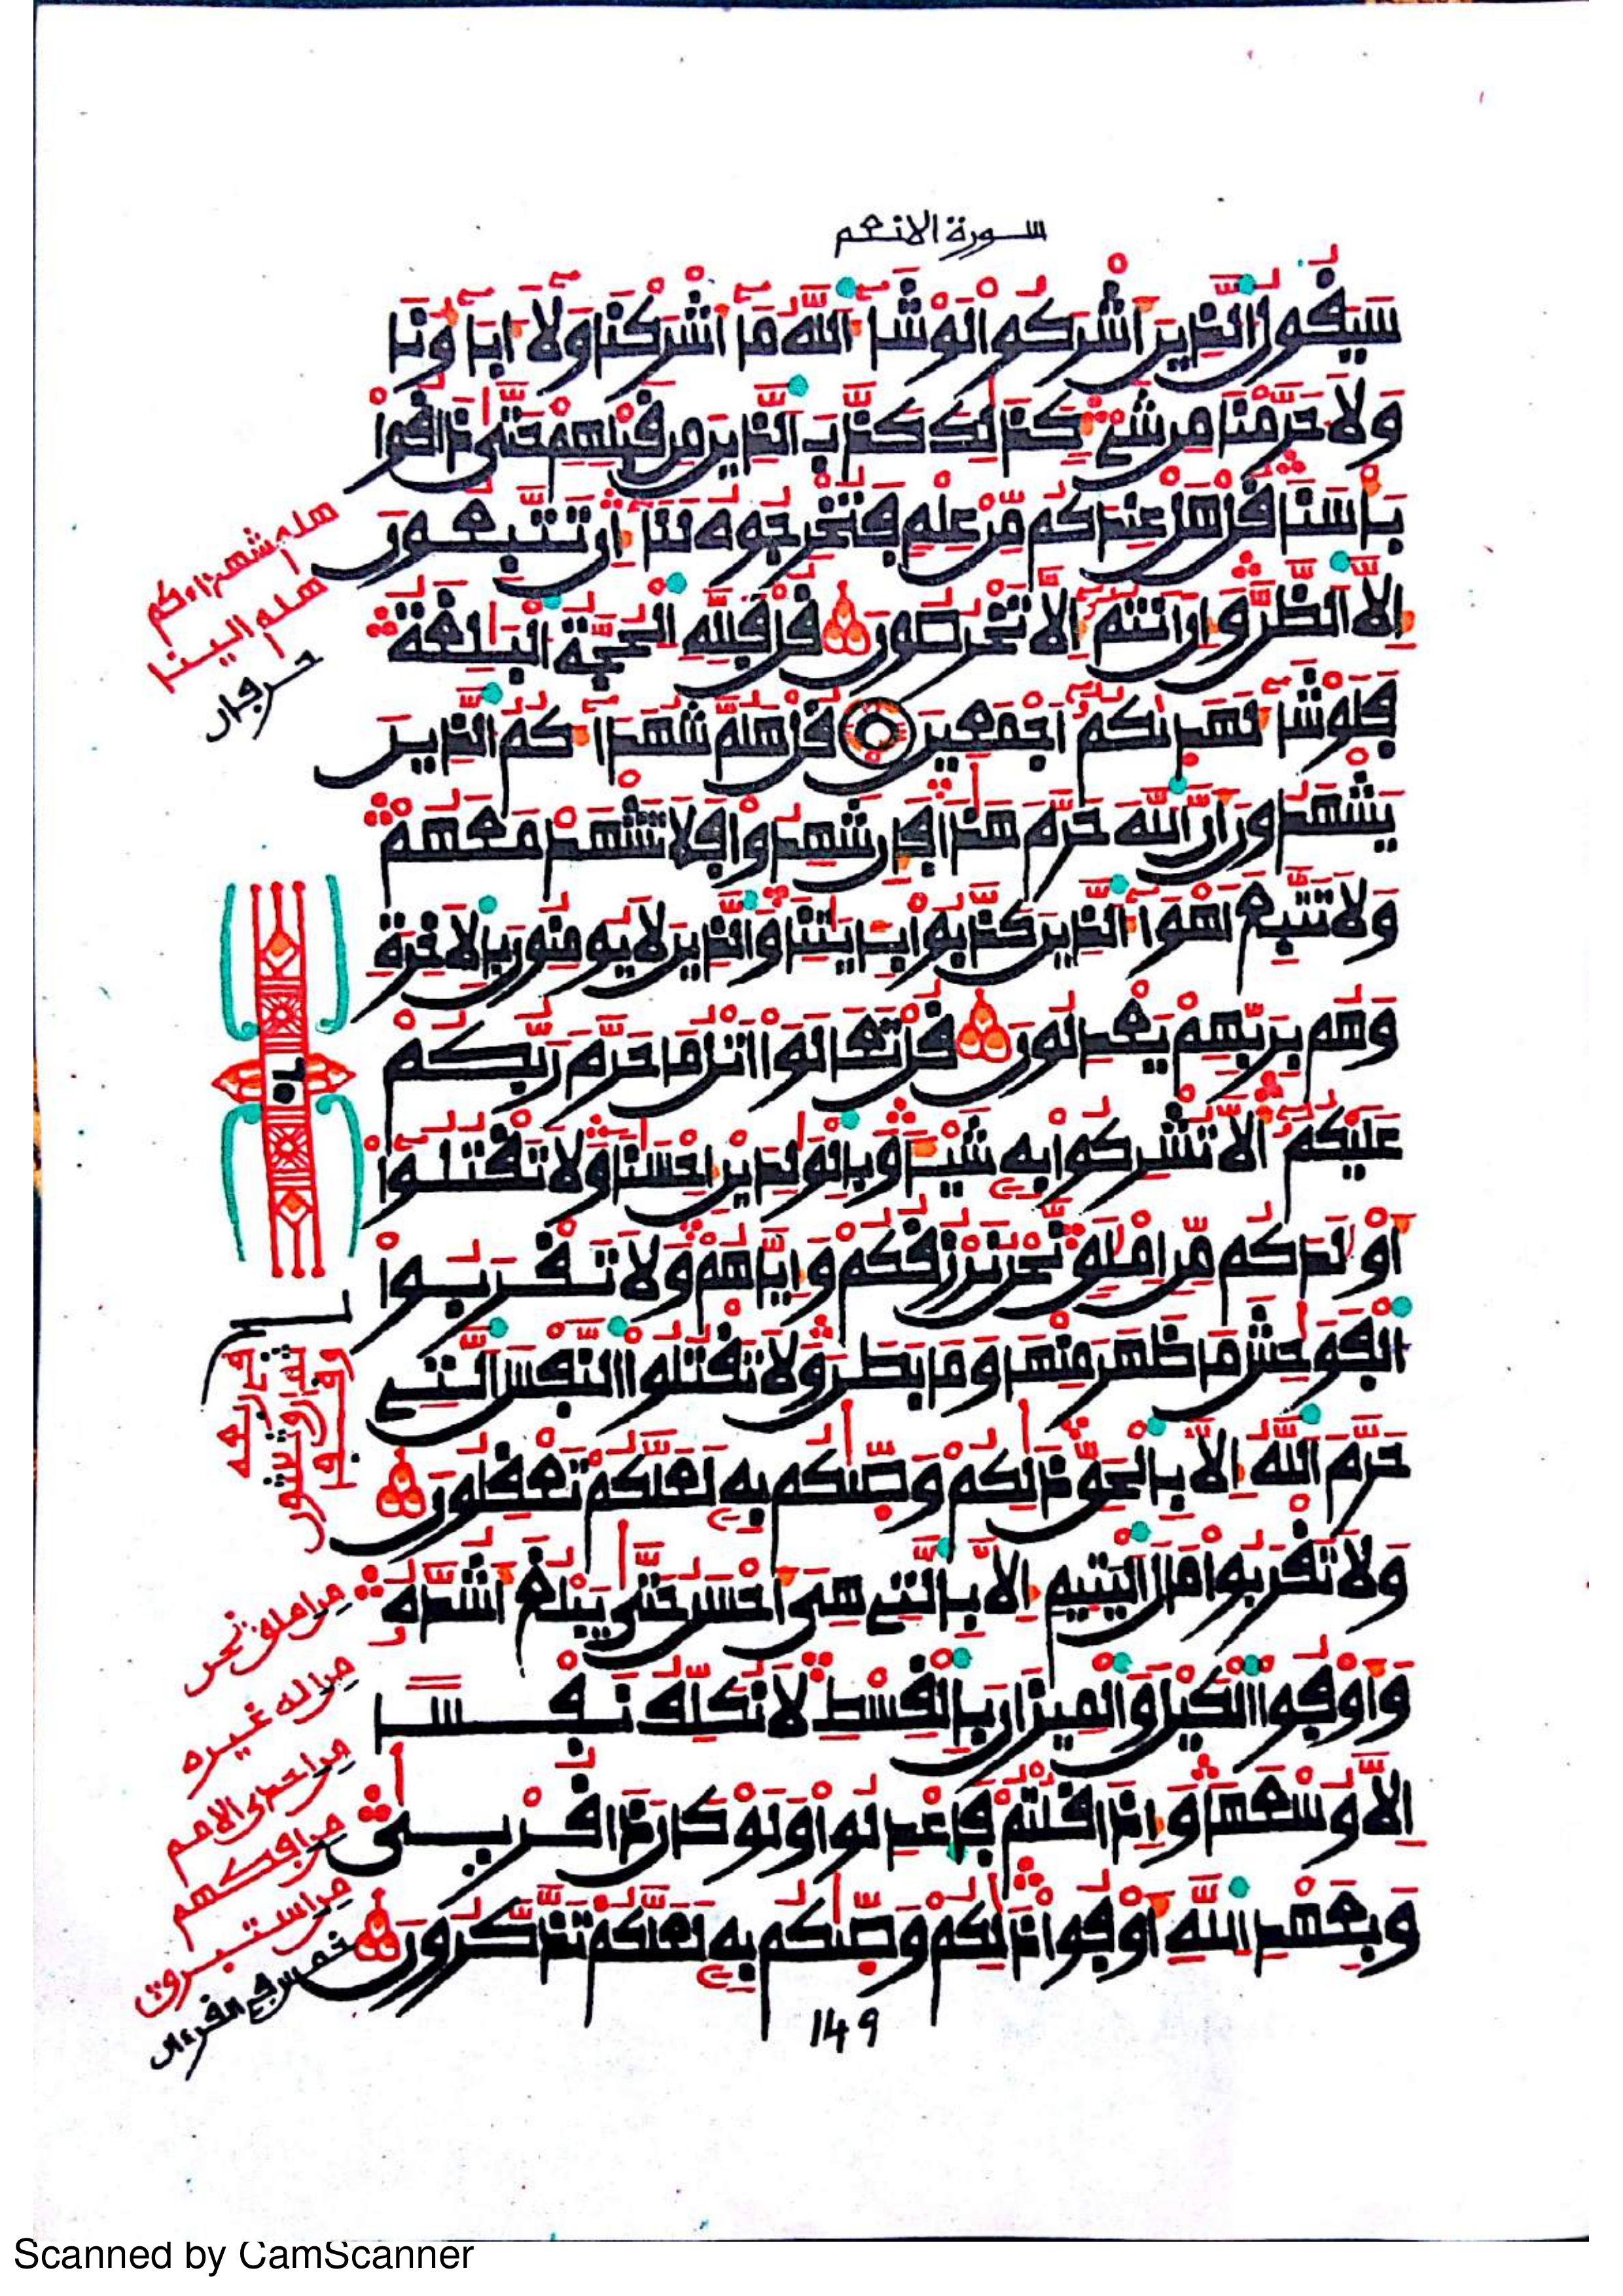 سورة الانعم
سَيَقُولُ الذِينَ أَشْرَكُوا لَوْ شَآءَ اللَّهُ مَآ أَشْرَكْنَا وَلَآ ءَابَآؤُنَا
وَلَا حَرَّمْنَا مِن شَيْءٍ كَذَٰلِكَ كَذَّبَ الذِينَ مِن قَبْلِهِمْ حَتَّىٰ ذَاقُوا
بَأْسَنَا قُلْ هَلْ عِندَكُم مِّنْ عِلْمٍ فَتُخْرِجُوهُ لَنَآ إِن تَتَّبِعُونَ
إِلَّا الظَّنَّ وَإِنْ أَنتُمُ إِلَّا تَخْرُصُونَ قُلْ فَلِلَّهِ الْحُجَّةُ الْبَٰلِغَةُ
فَلَوْ شَآءَ لَهَدَىٰكُمُ أَجْمَعِينَ قُلْ هَلُمَّ شُهَدَآءَكُمُ الذِينَ
يَشْهَدُونَ أَنَّ اللَّهَ حَرَّمَ هَٰذَا فَإِن شَهِدُوا فَلَا تَشْهَدْ مَعَهُمْ
وَلَا تَتَّبِعَ اَهْوَآءَ الذِينَ كَذَّبُوا بِـَٔايَٰتِنَا وَالذِينَ لَا يُومِنُونَ بِالَاخِرَةِ
وَهُم بِرَبِّهِمْ يَعْدِلُونَ قُلْ تَعَالَوْا اَتْلُ مَا حَرَّمَ رَبُّكُمْ
عَلَيْكُمُ أَلَّا تُشْرِكُوا بِهِ شَيْـًٔا وَبِالْوَٰلِدَيْنِ إِحْسَٰنًا وَلَا تَقْتُلُوا
أَوْلَٰدَكُم مِّنِ امْلَٰقٍ نَّحْنُ نَرْزُقُكُمْ وَإِيَّاهُمْ وَلَا تَقْرَبُوا
الْفَوَٰحِشَ مَا ظَهَرَ مِنْهَا وَمَا بَطَنَ وَلَا تَقْتُلُوا النَّفْسَ الَّتِي
حَرَّمَ اللَّهُ إِلَّا بِالْحَقِّ ذَٰلِكُمْ وَصَّىٰكُم بِهِ لَعَلَّكُمْ تَعْقِلُونَ
وَلَا تَقْرَبُوا مَالَ الْيَتِيمِ إِلَّا بِالَّتِي هِيَ أَحْسَنُ حَتَّىٰ يَبْلُغَ أَشُدَّهُ
وَأَوْفُوا الْكَيْلَ وَالْمِيزَانَ بِالْقِسْطِ لَا نُكَلِّفُ نَفْسًا
إِلَّا وُسْعَهَا وَإِذَا قُلْتُمْ فَاعْدِلُوا وَلَوْ كَانَ ذَا قُرْبَىٰ
وَبِعَهْدِ اللَّهِ أَوْفُوا ذَٰلِكُمْ وَصَّىٰكُم بِهِ لَعَلَّكُمْ تَذَّكَّرُونَ
149
هلم شهداءكم
هلم الينا
حرفان
٦٥
من املق نحن
من اله غيره
من احدى الامم
من افكهم
من استبرق
خمس في القرءان
Scanned by CamScanner